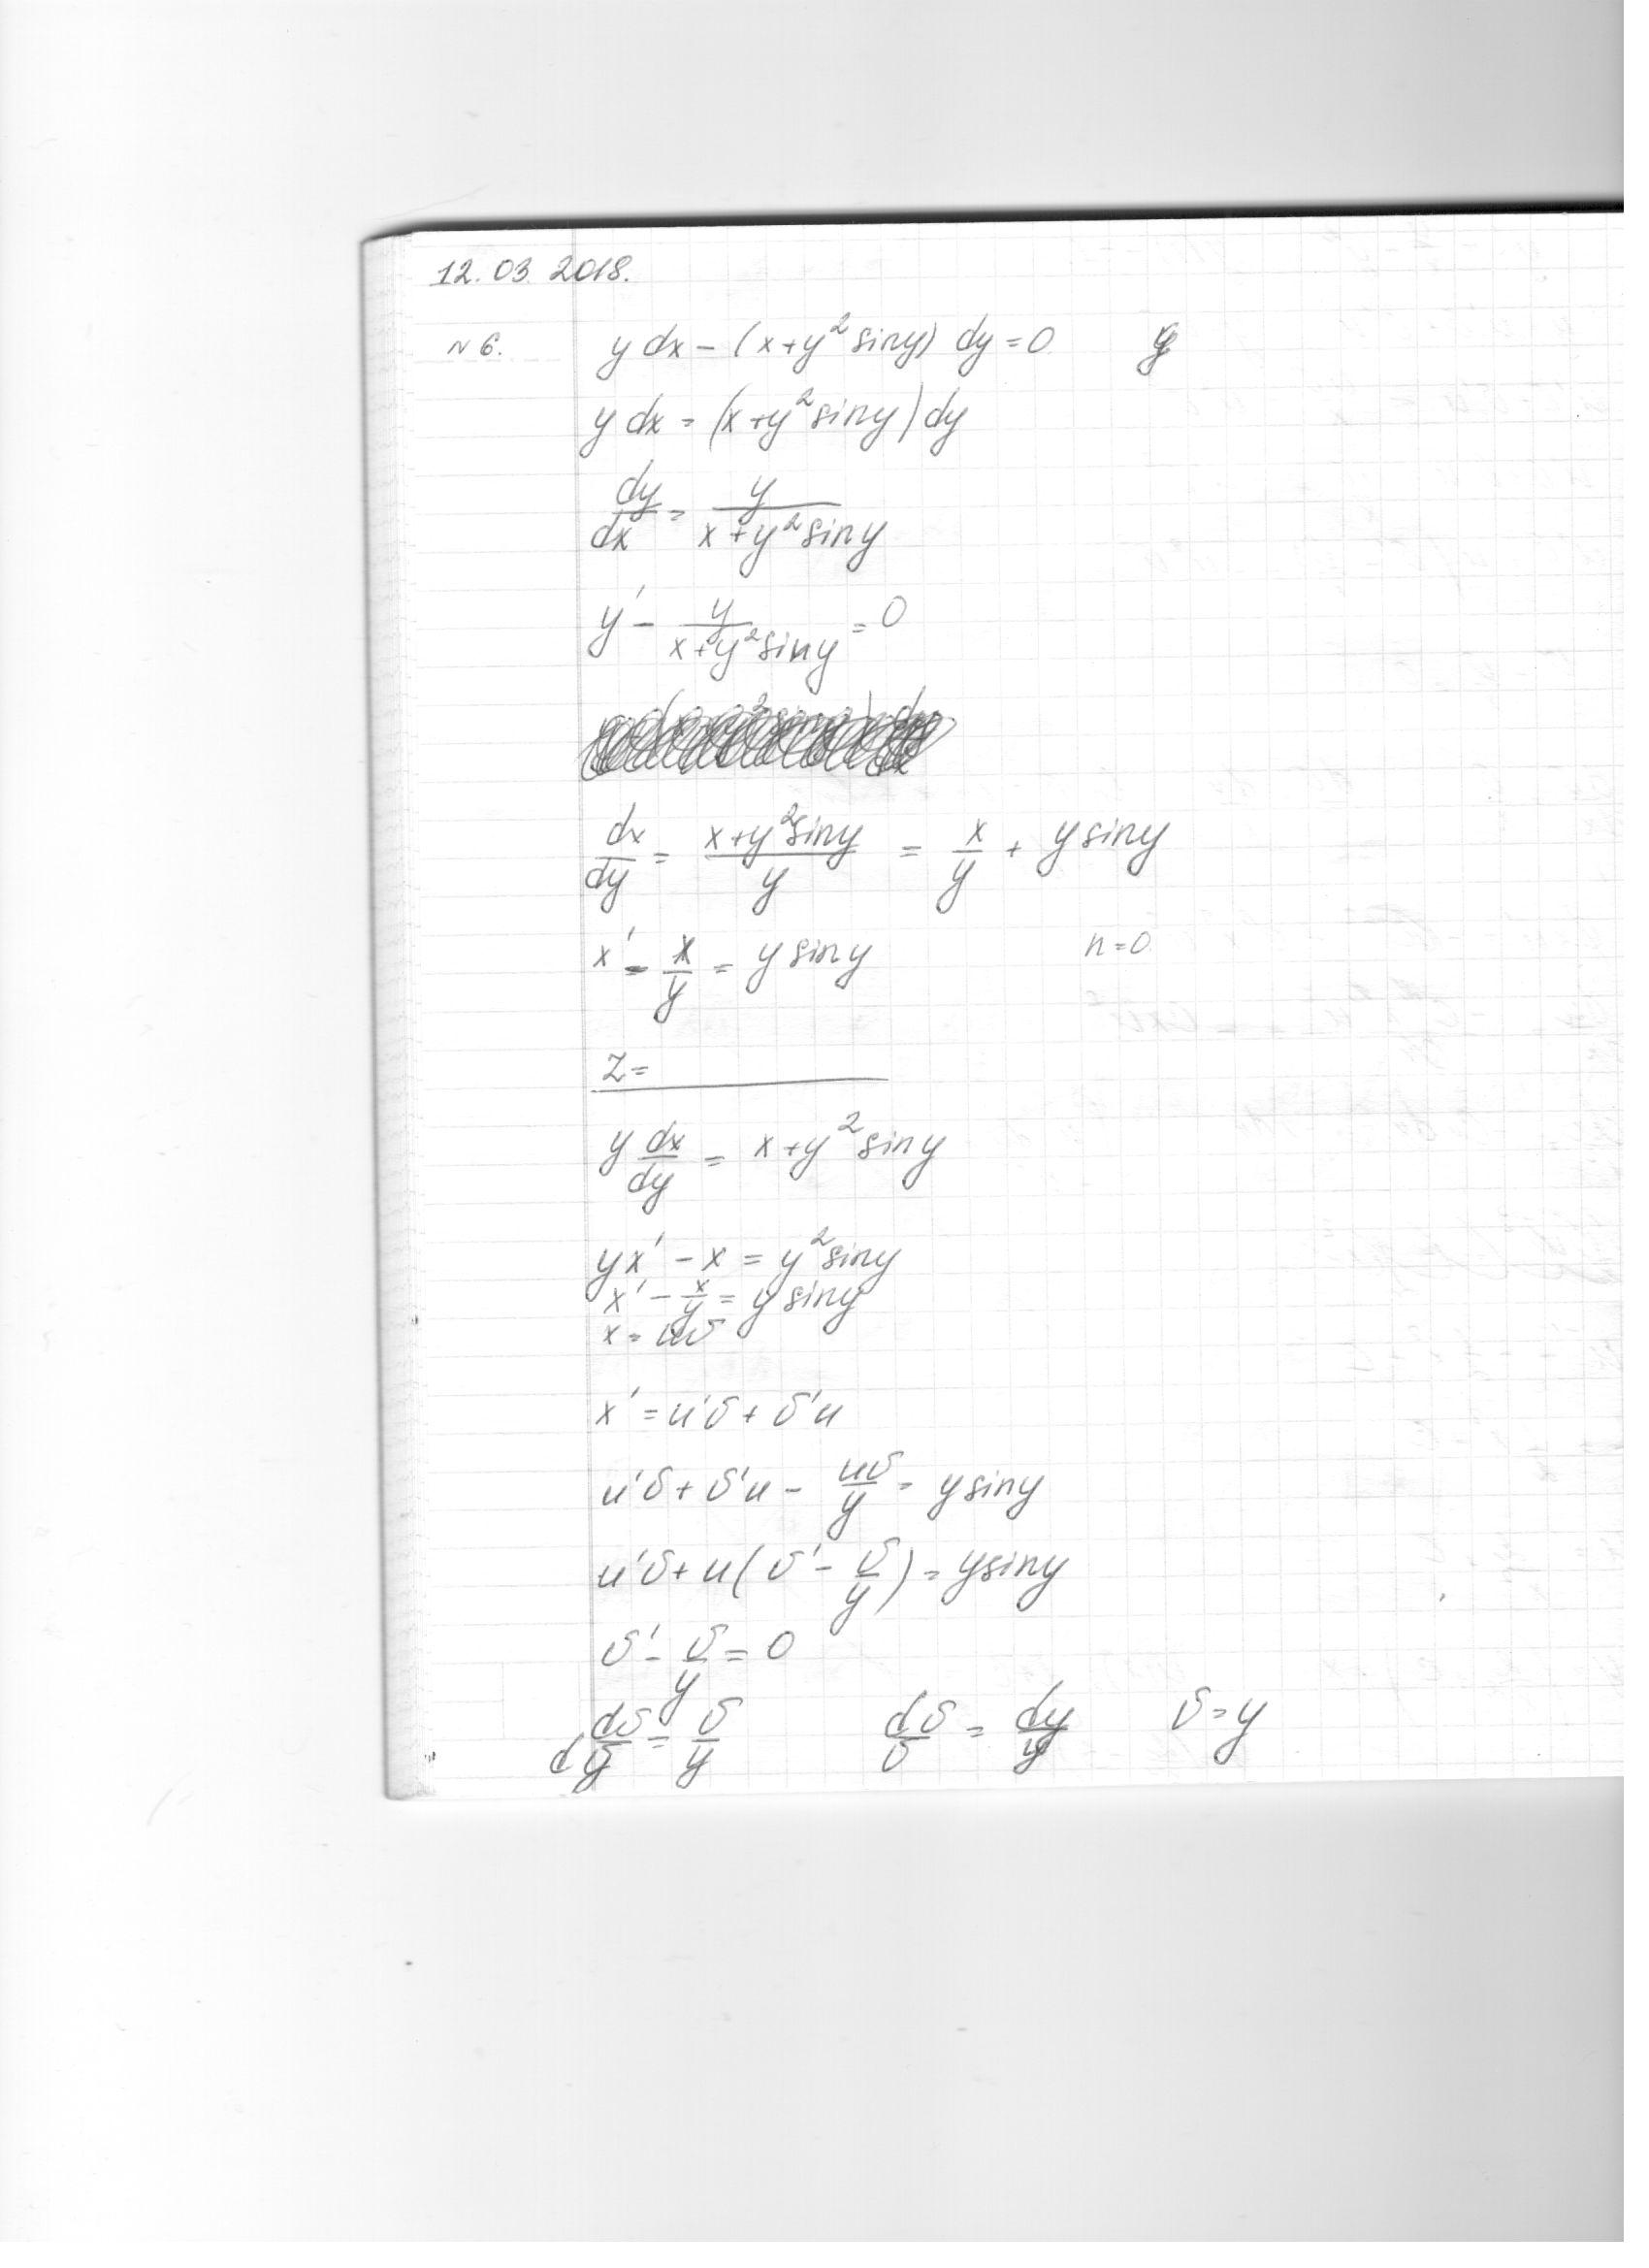 12.03.2018.
№6. y dx - (x+y² siny) dy = 0
y dx = (x+y² siny) dy
dy/dx = y/(x+y² siny)
y' - y/(x+y² siny) = 0
dx/dy = (x+y² siny)/y = x/y + y siny
x' - x/y = y siny n=0
z=
y dx/dy = x+y² siny
yx' - x = y² siny
x' - x/y = y siny
x = uv
x' = u'v + v'u
u'v + v'u - uv/y = y siny
u'v + u(v' - v/y) = y siny
v' - v/y = 0
dv/dy = v/y dv/v = dy/y v=y